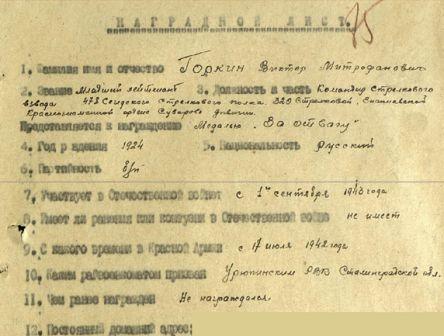 НАГРАДНОЙ ЛИСТ.
75
1. Фамилия имя и отчество Горкин Виктор Митрофанович
2. Звание Младший лейтенант 3. Должность и часть Командир Стрелкового
взвода 478 Стрелкового полка 320 Стрелковой,
Краснознаменной ордена Суворова дивизии.
Представляется к награждению Медалью "За отвагу"
4. Год рождения 1924 5. Национальность русский
6. Партийность б/п
7. Участвует в Отечественной войне с 1го сентября 1943 года
8. Имеет ли ранения или контузии в Отечественной войне не имеет
9. С какого времени в Красной Армии с 17 июля 1942 года
10. Каким райвоенкоматом призван Урюпинским РВК Сталинградской обл.
11. Чем ранее награжден Не награждался
12. Постоянный домашний адрес: